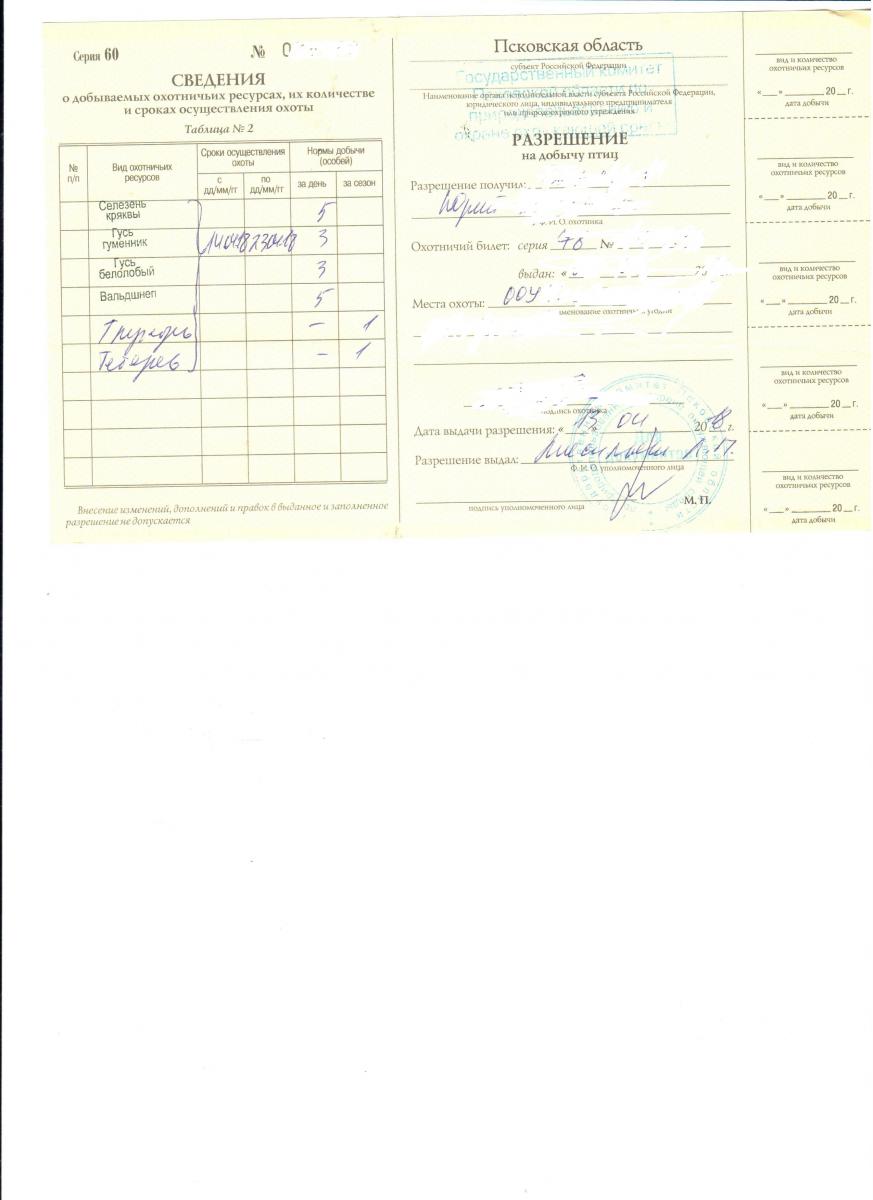 Серия 60 №
СВЕДЕНИЯ
о добываемых охотничьих ресурсах, их количестве
и сроках осуществления охоты
Таблица № 2
№ п/п
Вид охотничьих ресурсов
Сроки осуществления охоты
с дд/мм/гг
по дд/мм/гг
Нормы добычи (особей)
за день
за сезон
Селезень кряквы 5
Гусь гуменник 14.04.18 23.04.18 3
Гусь белолобый 3
Вальдшнеп 5
Глухарь – 1
Тетерев – 1
Внесение изменений, дополнений и правок в выданное и заполненное
разрешение не допускается
Псковская область
субъект Российской Федерации
Государственный комитет
Псковской области по
природопользованию и
охране окружающей среды
Наименование органа исполнительной власти субъекта Российской Федерации,
юридического лица, индивидуального предпринимателя
или природоохранного учреждения
РАЗРЕШЕНИЕ
на добычу птиц
Разрешение получил:
Юрий
Ф. И. О. охотника
Охотничий билет: серия №
выдан: «
Места охоты: ООУ
именование охотничьих угодий
подпись охотника
Дата выдачи разрешения: « 13 » 04 2018 г.
Разрешение выдал: Л.П.
Ф. И. О. уполномоченного лица
М. П.
подпись уполномоченного лица
вид и количество
охотничьих ресурсов
«__» ______ 20__ г.
дата добычи
вид и количество
охотничьих ресурсов
«__» ______ 20__ г.
дата добычи
вид и количество
охотничьих ресурсов
«__» ______ 20__ г.
дата добычи
вид и количество
охотничьих ресурсов
«__» ______ 20__ г.
дата добычи
вид и количество
охотничьих ресурсов
«__» ______ 20__ г.
дата добычи